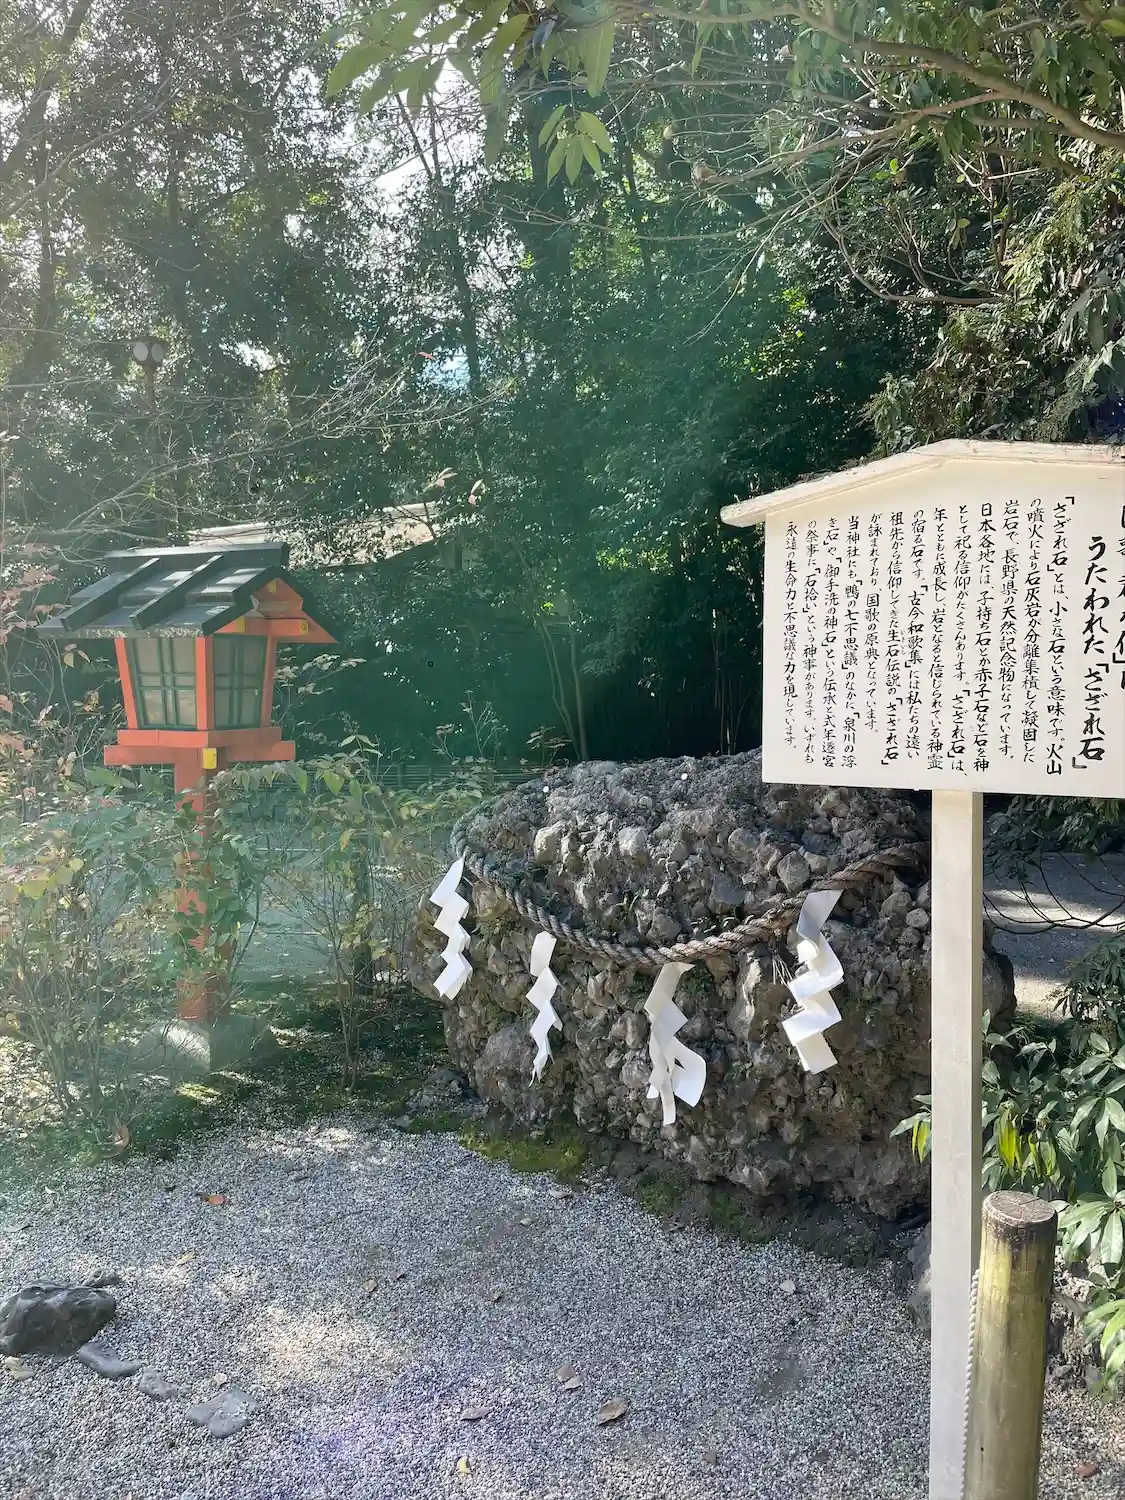 国歌「君が代」に
うたわれた「さざれ石」
「さざれ石」とは、小さな石という意味です。火山
の噴火により石灰岩が分離集積して凝固した
岩石で、長野県の天然記念物になっています。
日本各地には、子持ち石とか赤子石などと石を神
として祀る信仰がたくさんあります。「さざれ石」は、
年とともに成長し、岩となると信じられている神霊
の宿る石です。「古今和歌集」には私たちの遠い
祖先から信仰してきた生石伝説の「さざれ石」
が詠まれており、国歌の原典となっています。
当神社にも、「鴨の七不思議」のなかに、「泉川の浮
き石」や、「御手洗の神石」という伝承と式年遷宮
の祭事に「石拾」いという神事があります。いずれも
永遠の生命力と不思議な力を現しています。